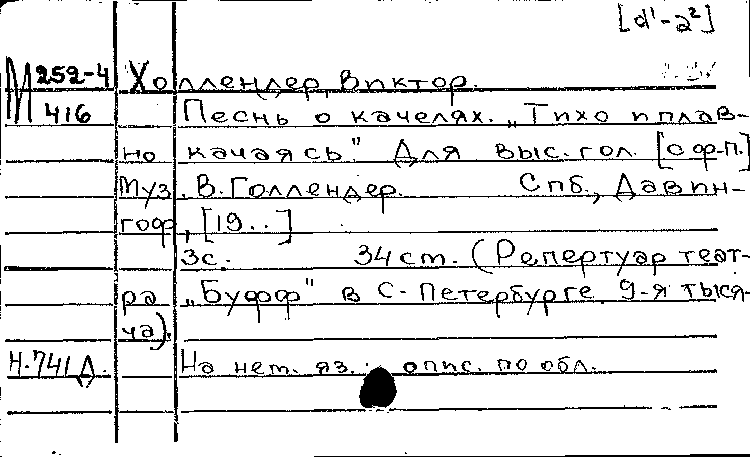 [d¹-a²]
М 252-4 Холлендер, Виктор.
416 Песнь о качелях. „Тихо и плав-
но качаясь." Для выс. гол. [с ф.-п.]
Муз. В. Голлендер. Спб., Давин-
гоф, [19..]
3с. 34 см. (Репертуар теат-
ра „Буфф" в С.-Петербурге. 9-я тыся-
ча).
Н-741Д. На нем. яз.; опис. по обл.